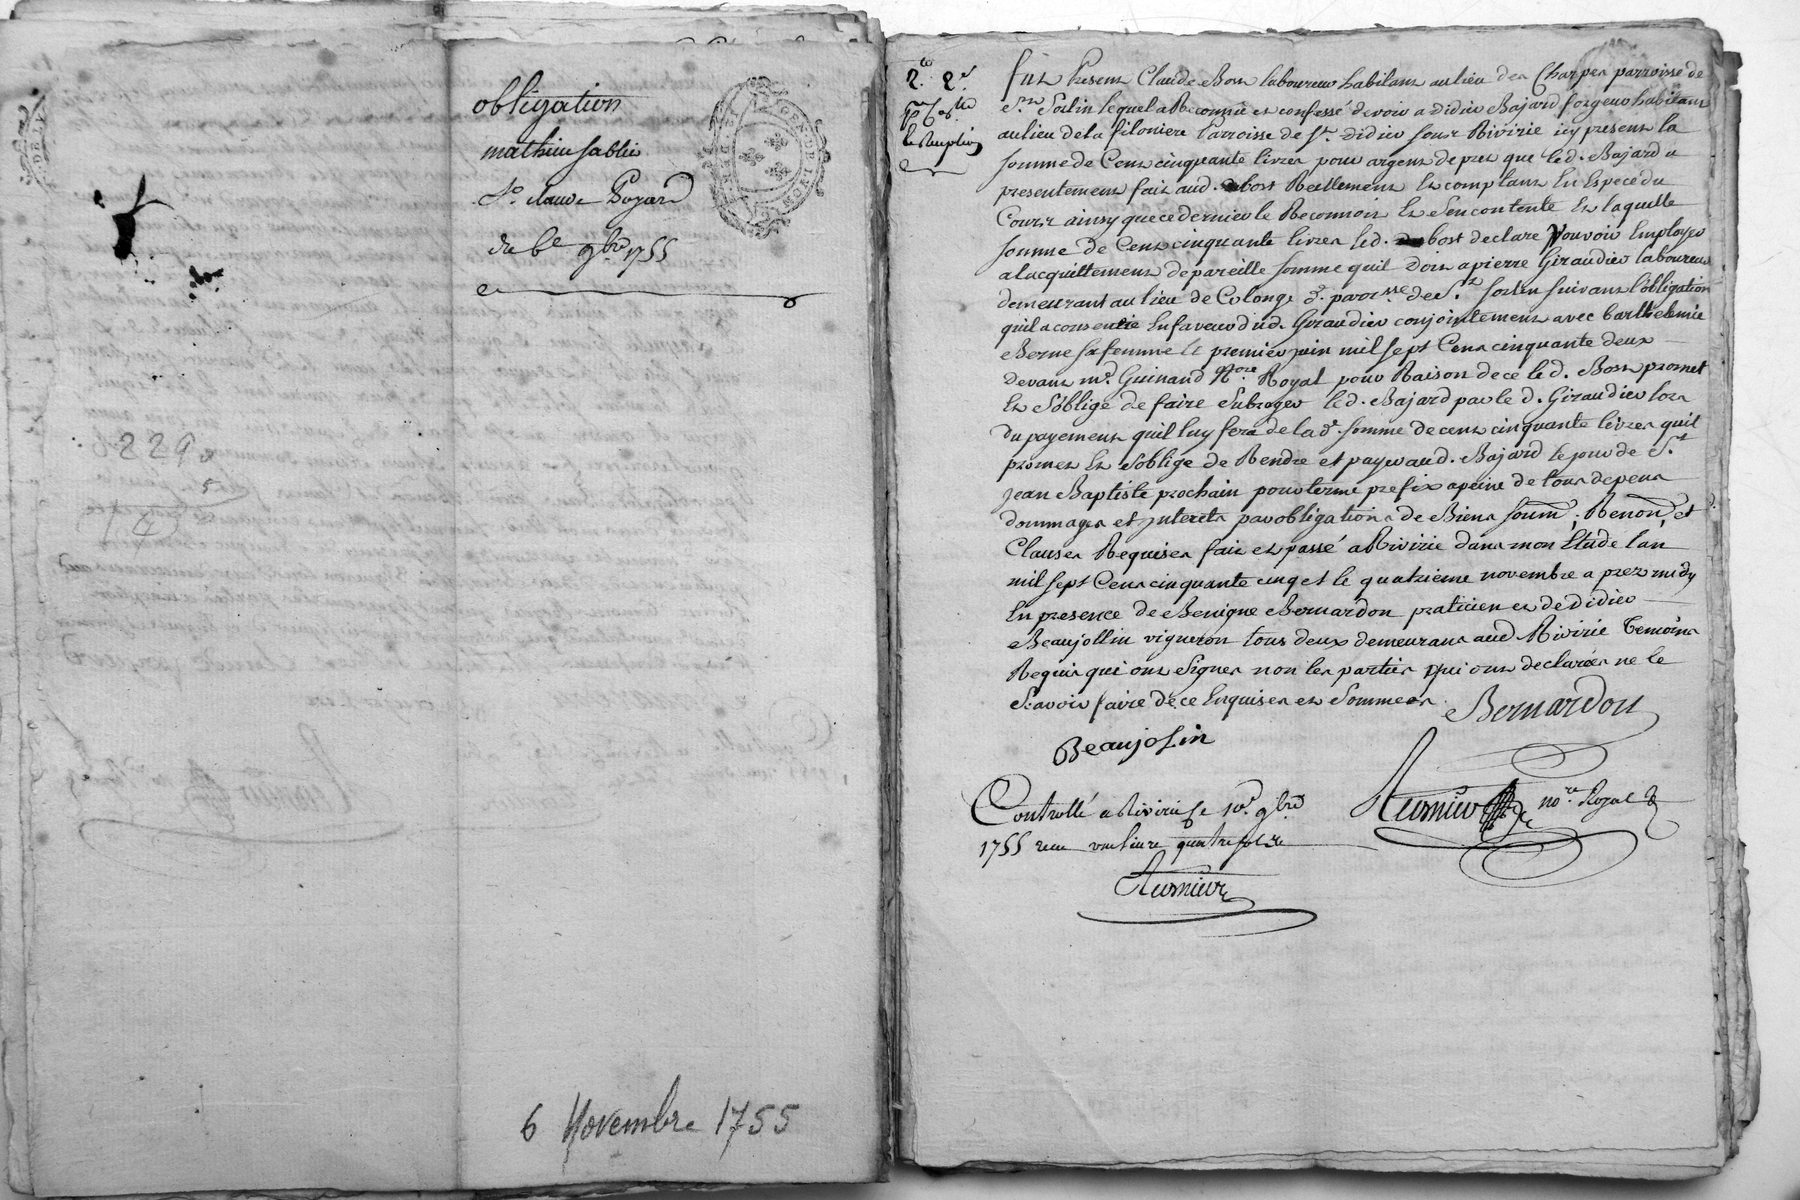 obligation
mathieu sablie
Sr. claude Poyard
du 6e 9bre 1755
GENER LYON
229
5
6 Novembre 1755
2. 2.
fut Present Claude Bost laboureur habitant au lieu des Charpes parroisse de
St. Sorlin lequel a Reconnüe et confessé devoir a Didier Bajard forgeur habitant
au lieu de la filoniere Parroisse de St. Didier sous Rivirie icy present la
somme de Cent cinquante livres pour argent de pret que led. Bajard a
presentement fait aud. bost Reellement et comptant En Espece du
Cours ainsy que ce dernier le Reconnoit et s'en contente Et laquelle
somme de Cent cinquante livres led. bost declare pouvoir Employer
a lacquittement de pareille somme quil doit a pierre Giraudier laboureur
demeurant au lieu de Colonge d. paroisse de St. Sorlin suivant lobligation
quil a consentie En faveur dud. Giraudier conjointement avec barthelemie
Berne sa femme le premier juin mil sept Cens cinquante deux
devant me. Guinand Nore. Royal pour Raison de ce led. Bost promet
Et s'oblige de faire Subroger led. Bajard par le d. Giraudier lors
du payement quil luy fera de lad. somme de cent cinquante livres quil
promet Et s'oblige de Rendre et payer aud. Bajard le jour de St.
jean Baptiste prochain pour terme prefix a peine de tous depens
dommages et jnterets par obligations de Biens soum, Renon, et
Clauses Requises fait et passé a Rivirie dans mon Etude lan
mil sept Cens cinquante cinq et le quatrieme novembre a prez midy
En presence de Benigne Bernardon praticien et de Didier
Beaujollin vigneron tous deux demeurans aud Rivirie temoins
Requis qui ont Signés non les parties qui ont declarées ne le
Scavoir faire de ce Enquises et Sommées.
Bernardon
Beaujolin
Controllé a Rivirie le 10e. 9bre
1755 recu une livre quatre sols
nore Royal